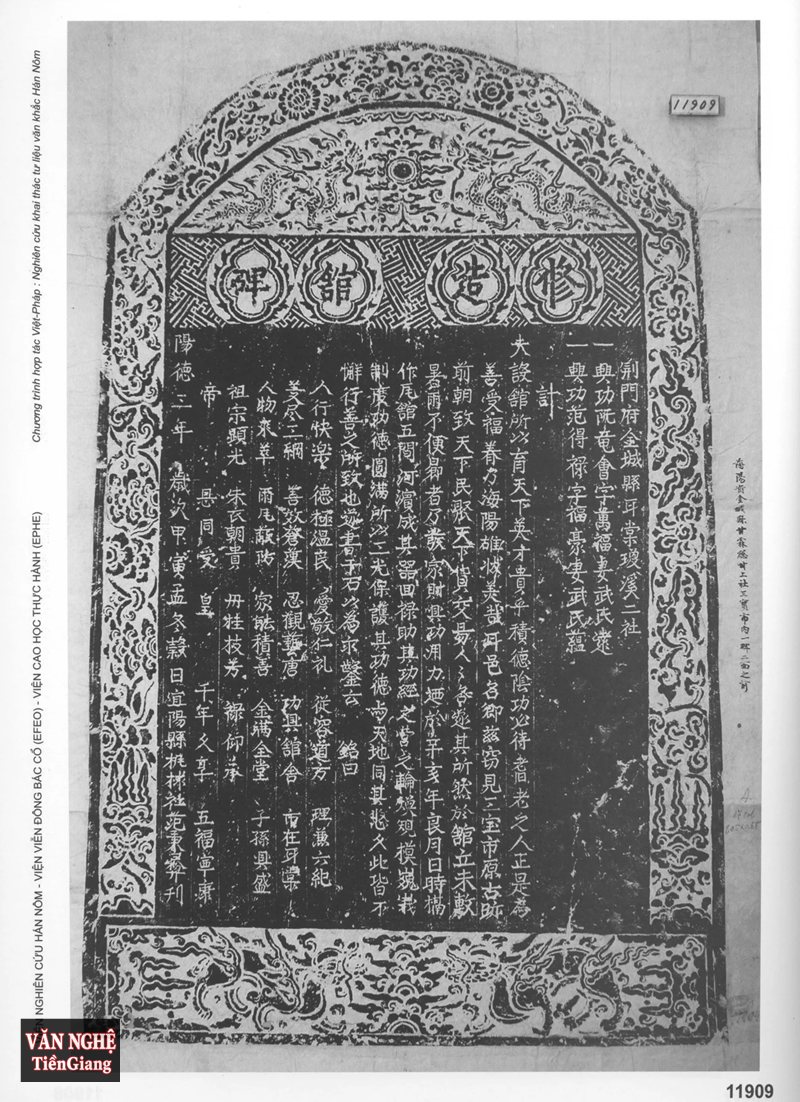 Chương trình hợp tác Việt-Pháp : Nghiên cứu khai thác tư liệu văn khắc Hán Nôm
NGHIÊN CỨU HÁN NÔM - VIỆN VIỄN ĐÔNG BÁC CỔ (EFEO) - VIỆN CAO HỌC THỰC HÀNH (EPHE)
11909
修造舘碑
荆門府金城縣耳棠瓊溪二社
一興功阮竜會字萬福妻武氏
一興功范得祿字福豪妻武氏蘊
計
大設舘所以育天下英才貴乎積德陰功必待耆老之人正是為
善受福眷乃海陽雄狀美哉耳邑名鄉兹窃見三宝市原古跡
前朝致天下民聚天下貨交易人人各遂其所然於舘立未敷
暑雨不便易者乃發家財興功用力廼於辛亥年良月日時構
作瓦舘五間河濱成其器田祿助其功經之營之輪煥規模巍哉
制度功德圓滿所以三光保護其功德与天地同其悠久此皆不
懈行善之所致也遂書于石以為永鑒云 銘曰
人行快楽 德極温良 愛敬仁礼 從容道方 理兼六紀
美尽三綱 善效 漢 忍觀 唐 功興舘舍 市在耳棠
人物來萃 雨風蔽防 家能積善 金滿金堂 子孫興盛
祖宗顕光 朱衣朝貴 丹桂技芳 祿仰承
帝 恩同受 皇 千年久享 五福寧康
陽德三年 歲次甲寅孟冬穀日宜陽縣 社范 刊
海陽省金城縣甘 總甘上社三寶市内一碑二面之前
VĂN NGHỆ
TiềnGiang
11909